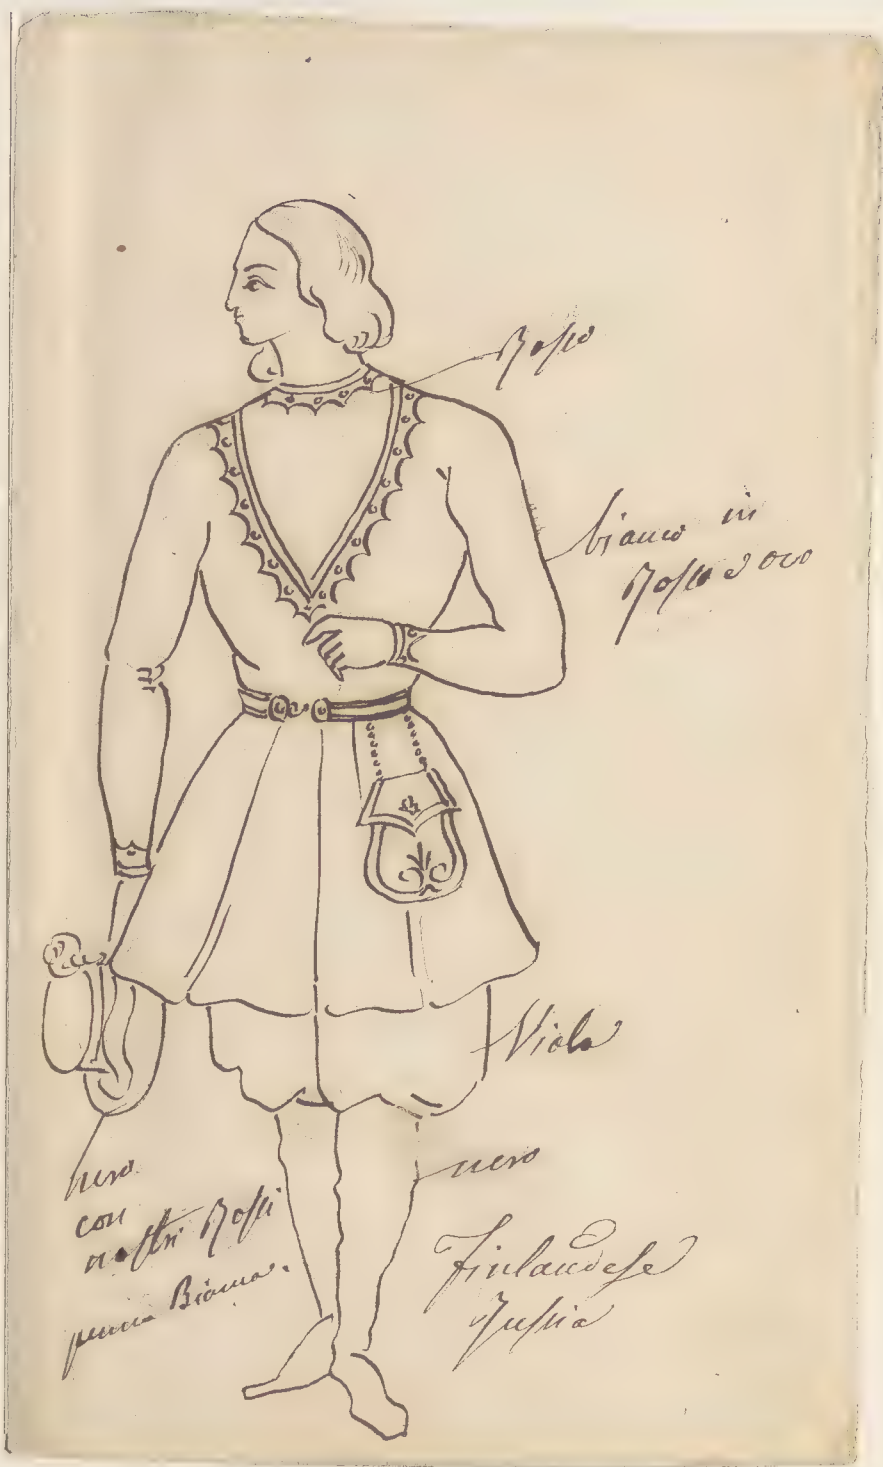 Rosso
bianco in
Rosso e oro
Viola
nero
nero
con
nastri Rossi
penna Bianca.
Finlandese
Russia